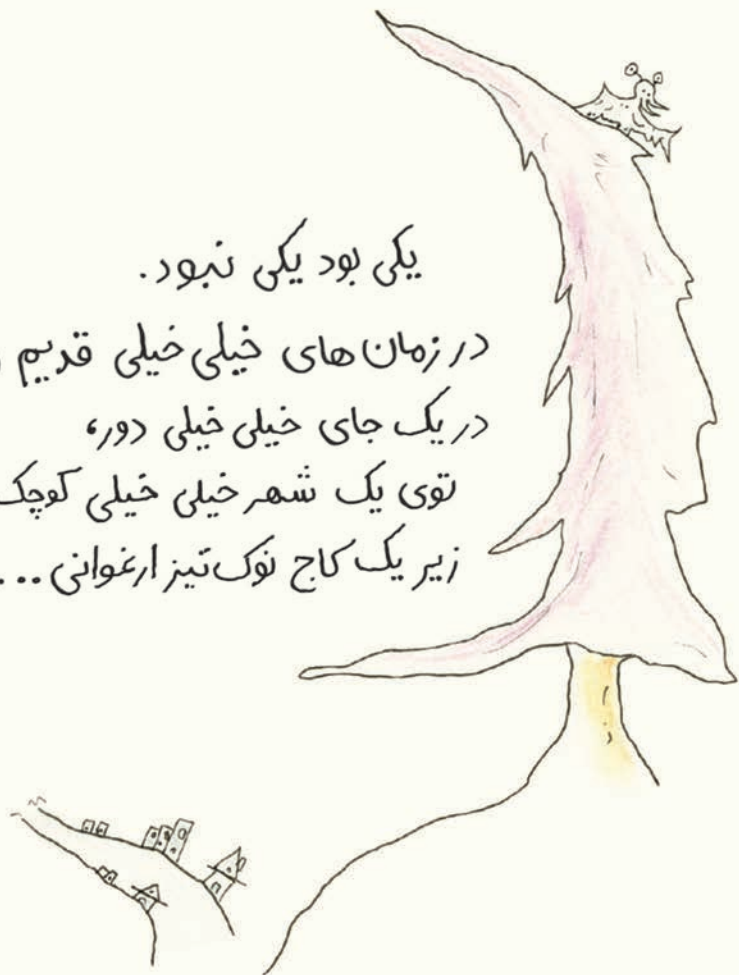 یکی بود یکی نبود.
در زمان های خیلی خیلی قدیم
در یک جای خیلی خیلی دور،
توی یک شهر خیلی خیلی کوچک
زیر یک کاج نوک تیز ارغوانی ...